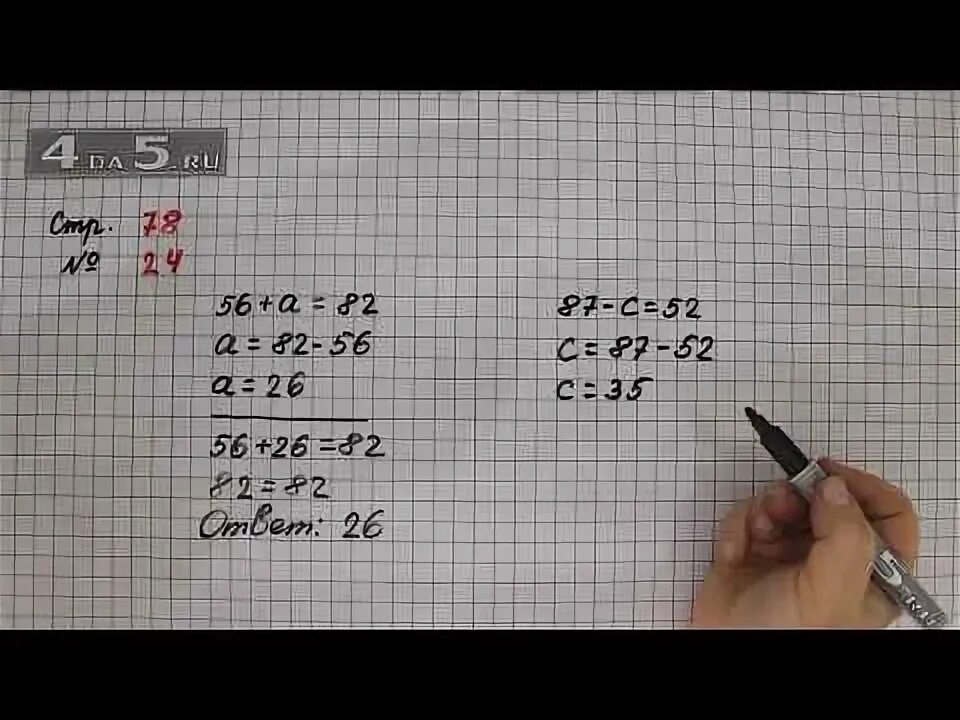 4 DA 5.RU
Стр. 78
№ 24
56+a=82
a=82-56
a=26
56+26=82
82=82
Ответ: 26
87-c=52
c=87-52
c=35